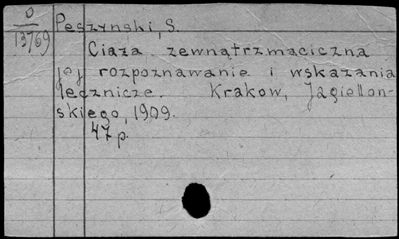 O
13769
Peszynski, S.
Ciąża zewnątrzmaciczna
jej rozpoznawanie i wskazania
lecznicze. Krakow, Jagiellon-
skiego, 1909.
47 p.